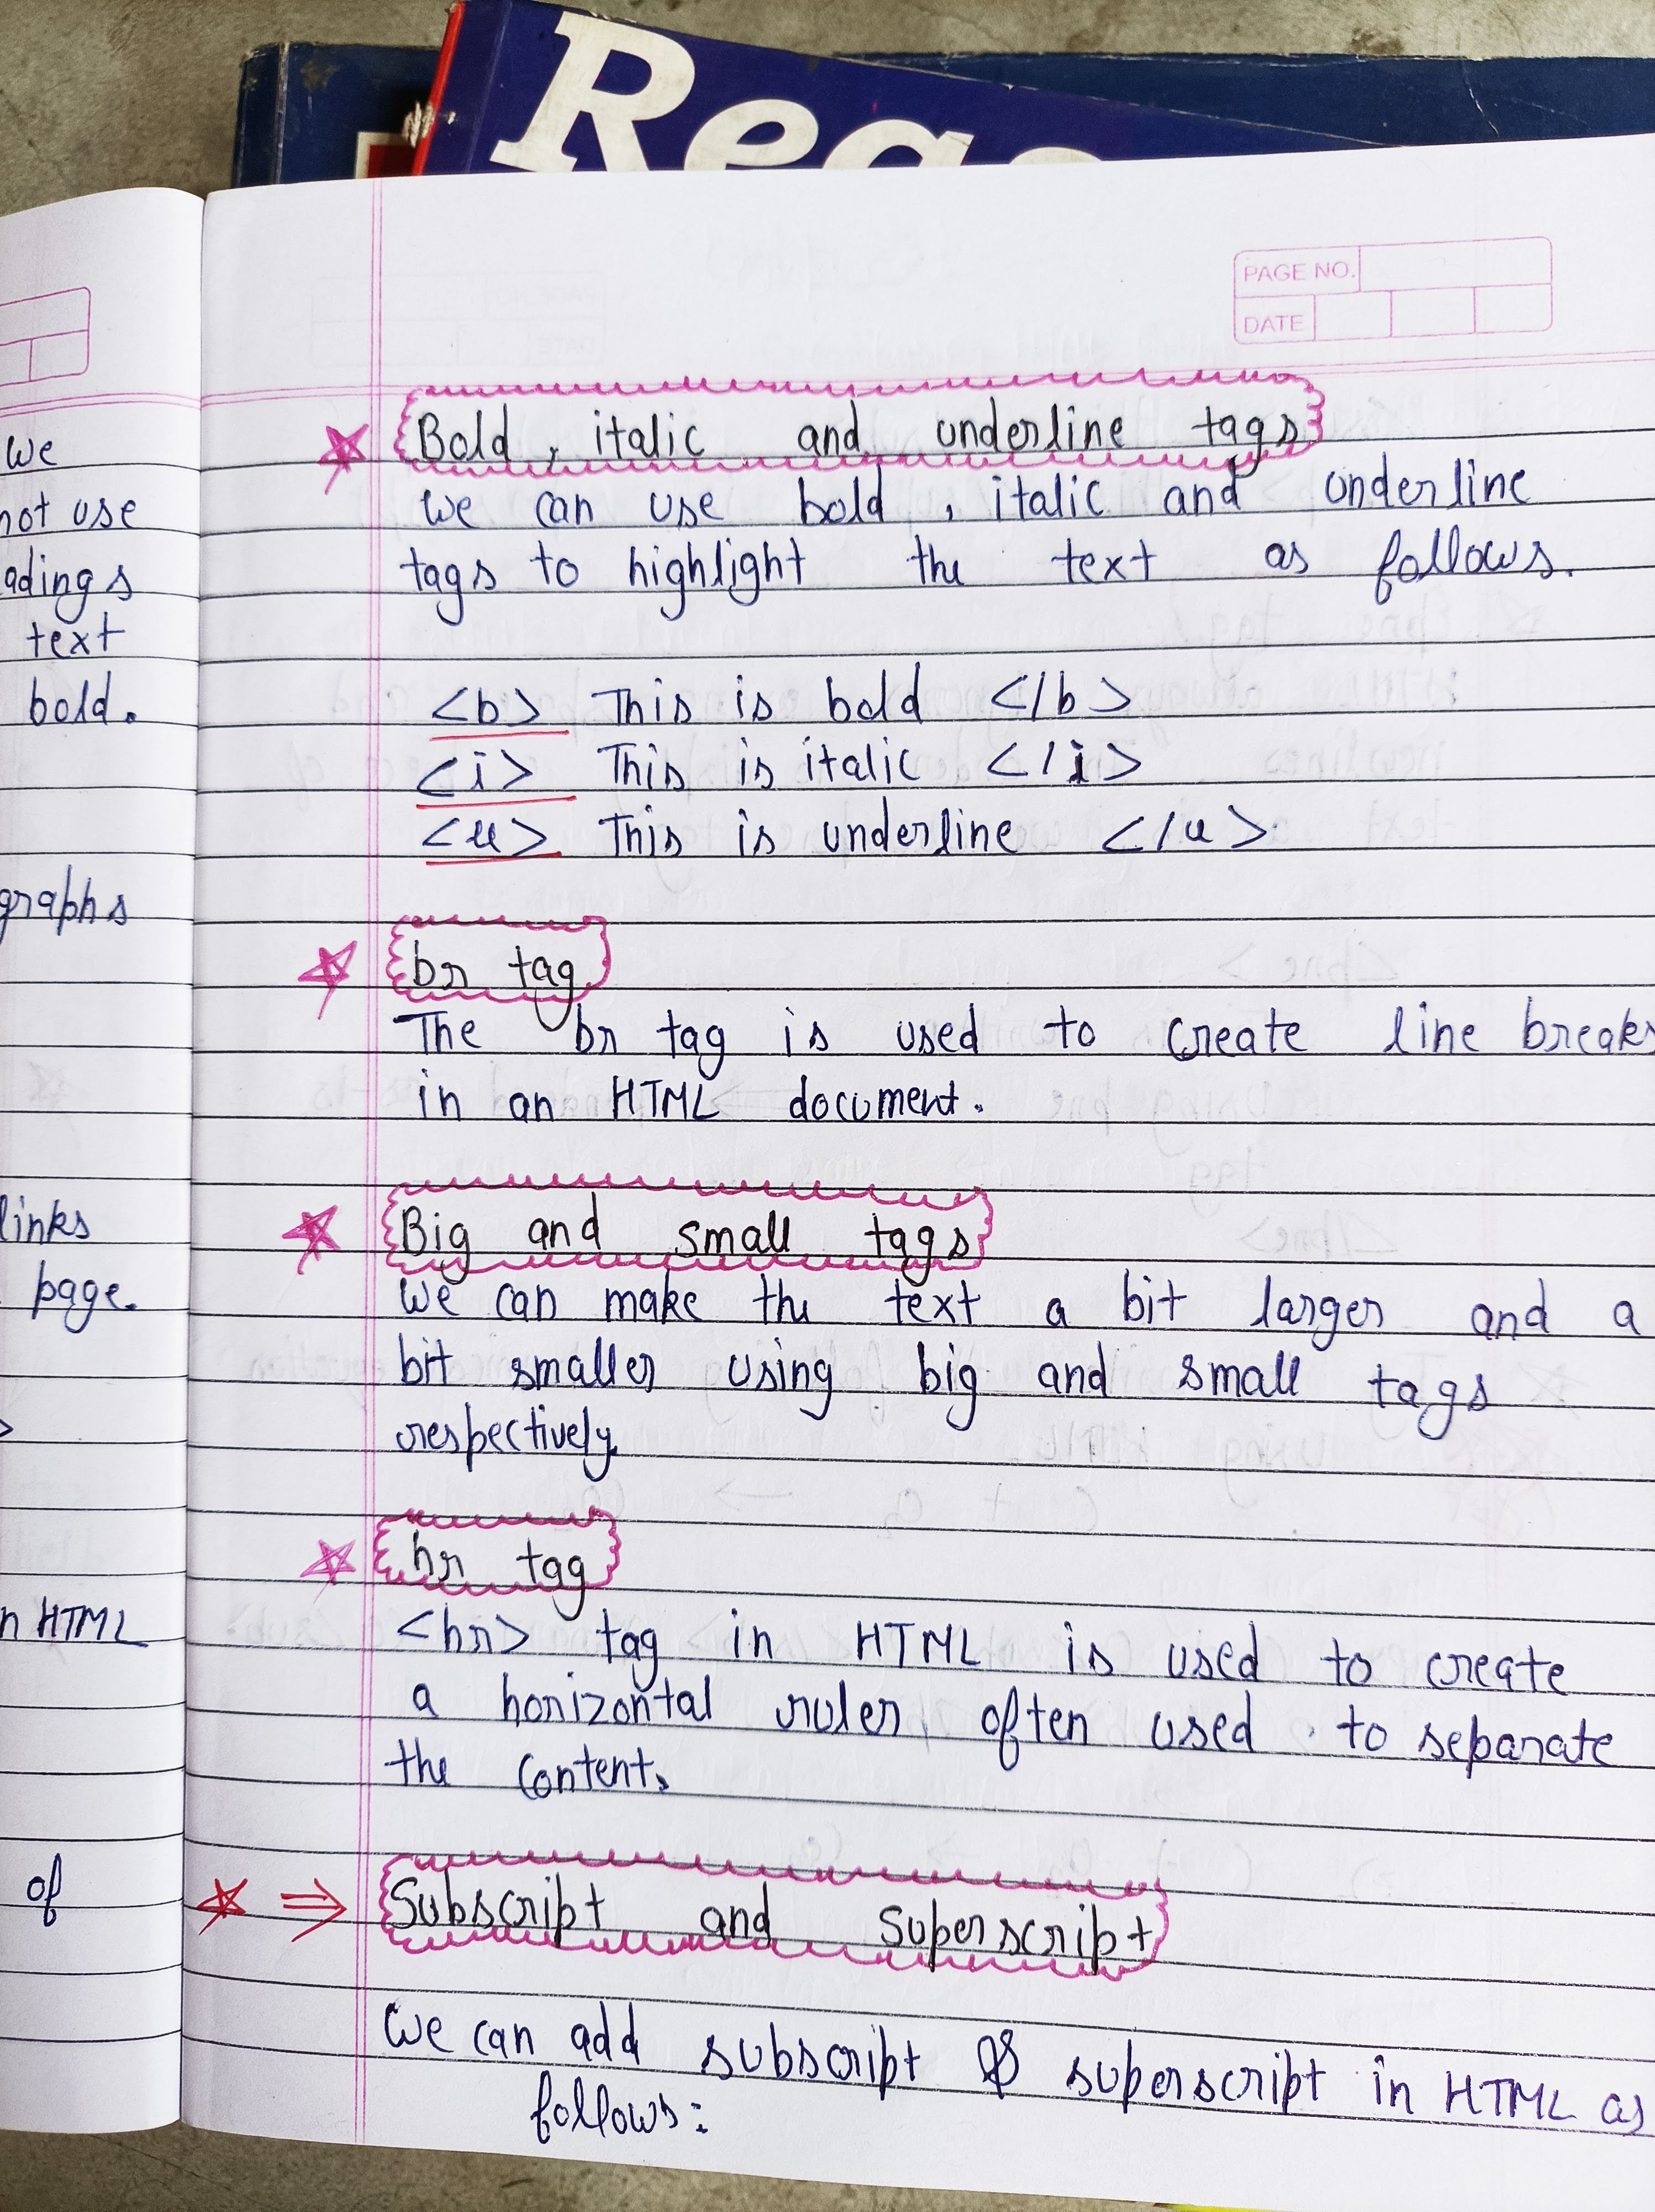 Reas
PAGE NO.
DATE
We
not use
adings
text
bold.
graphs
links
page.
n HTML
of
Bold, italic and underline tags
We can use bold, italic and underline
tags to highlight the text as follows.
<b> This is bold </b>
<i> This is italic </i>
<u> This is underline </u>
br tag
The br tag is used to create line breaks
in an HTML document.
Big and small tags
We can make the text a bit larger and a
bit smaller using big and small tags
respectively.
hr tag
<hr> tag in HTML is used to create
a horizontal ruler often used to separate
the content.
⇒ Subscript and Superscript
We can add subscript & superscript in HTML as
follows: